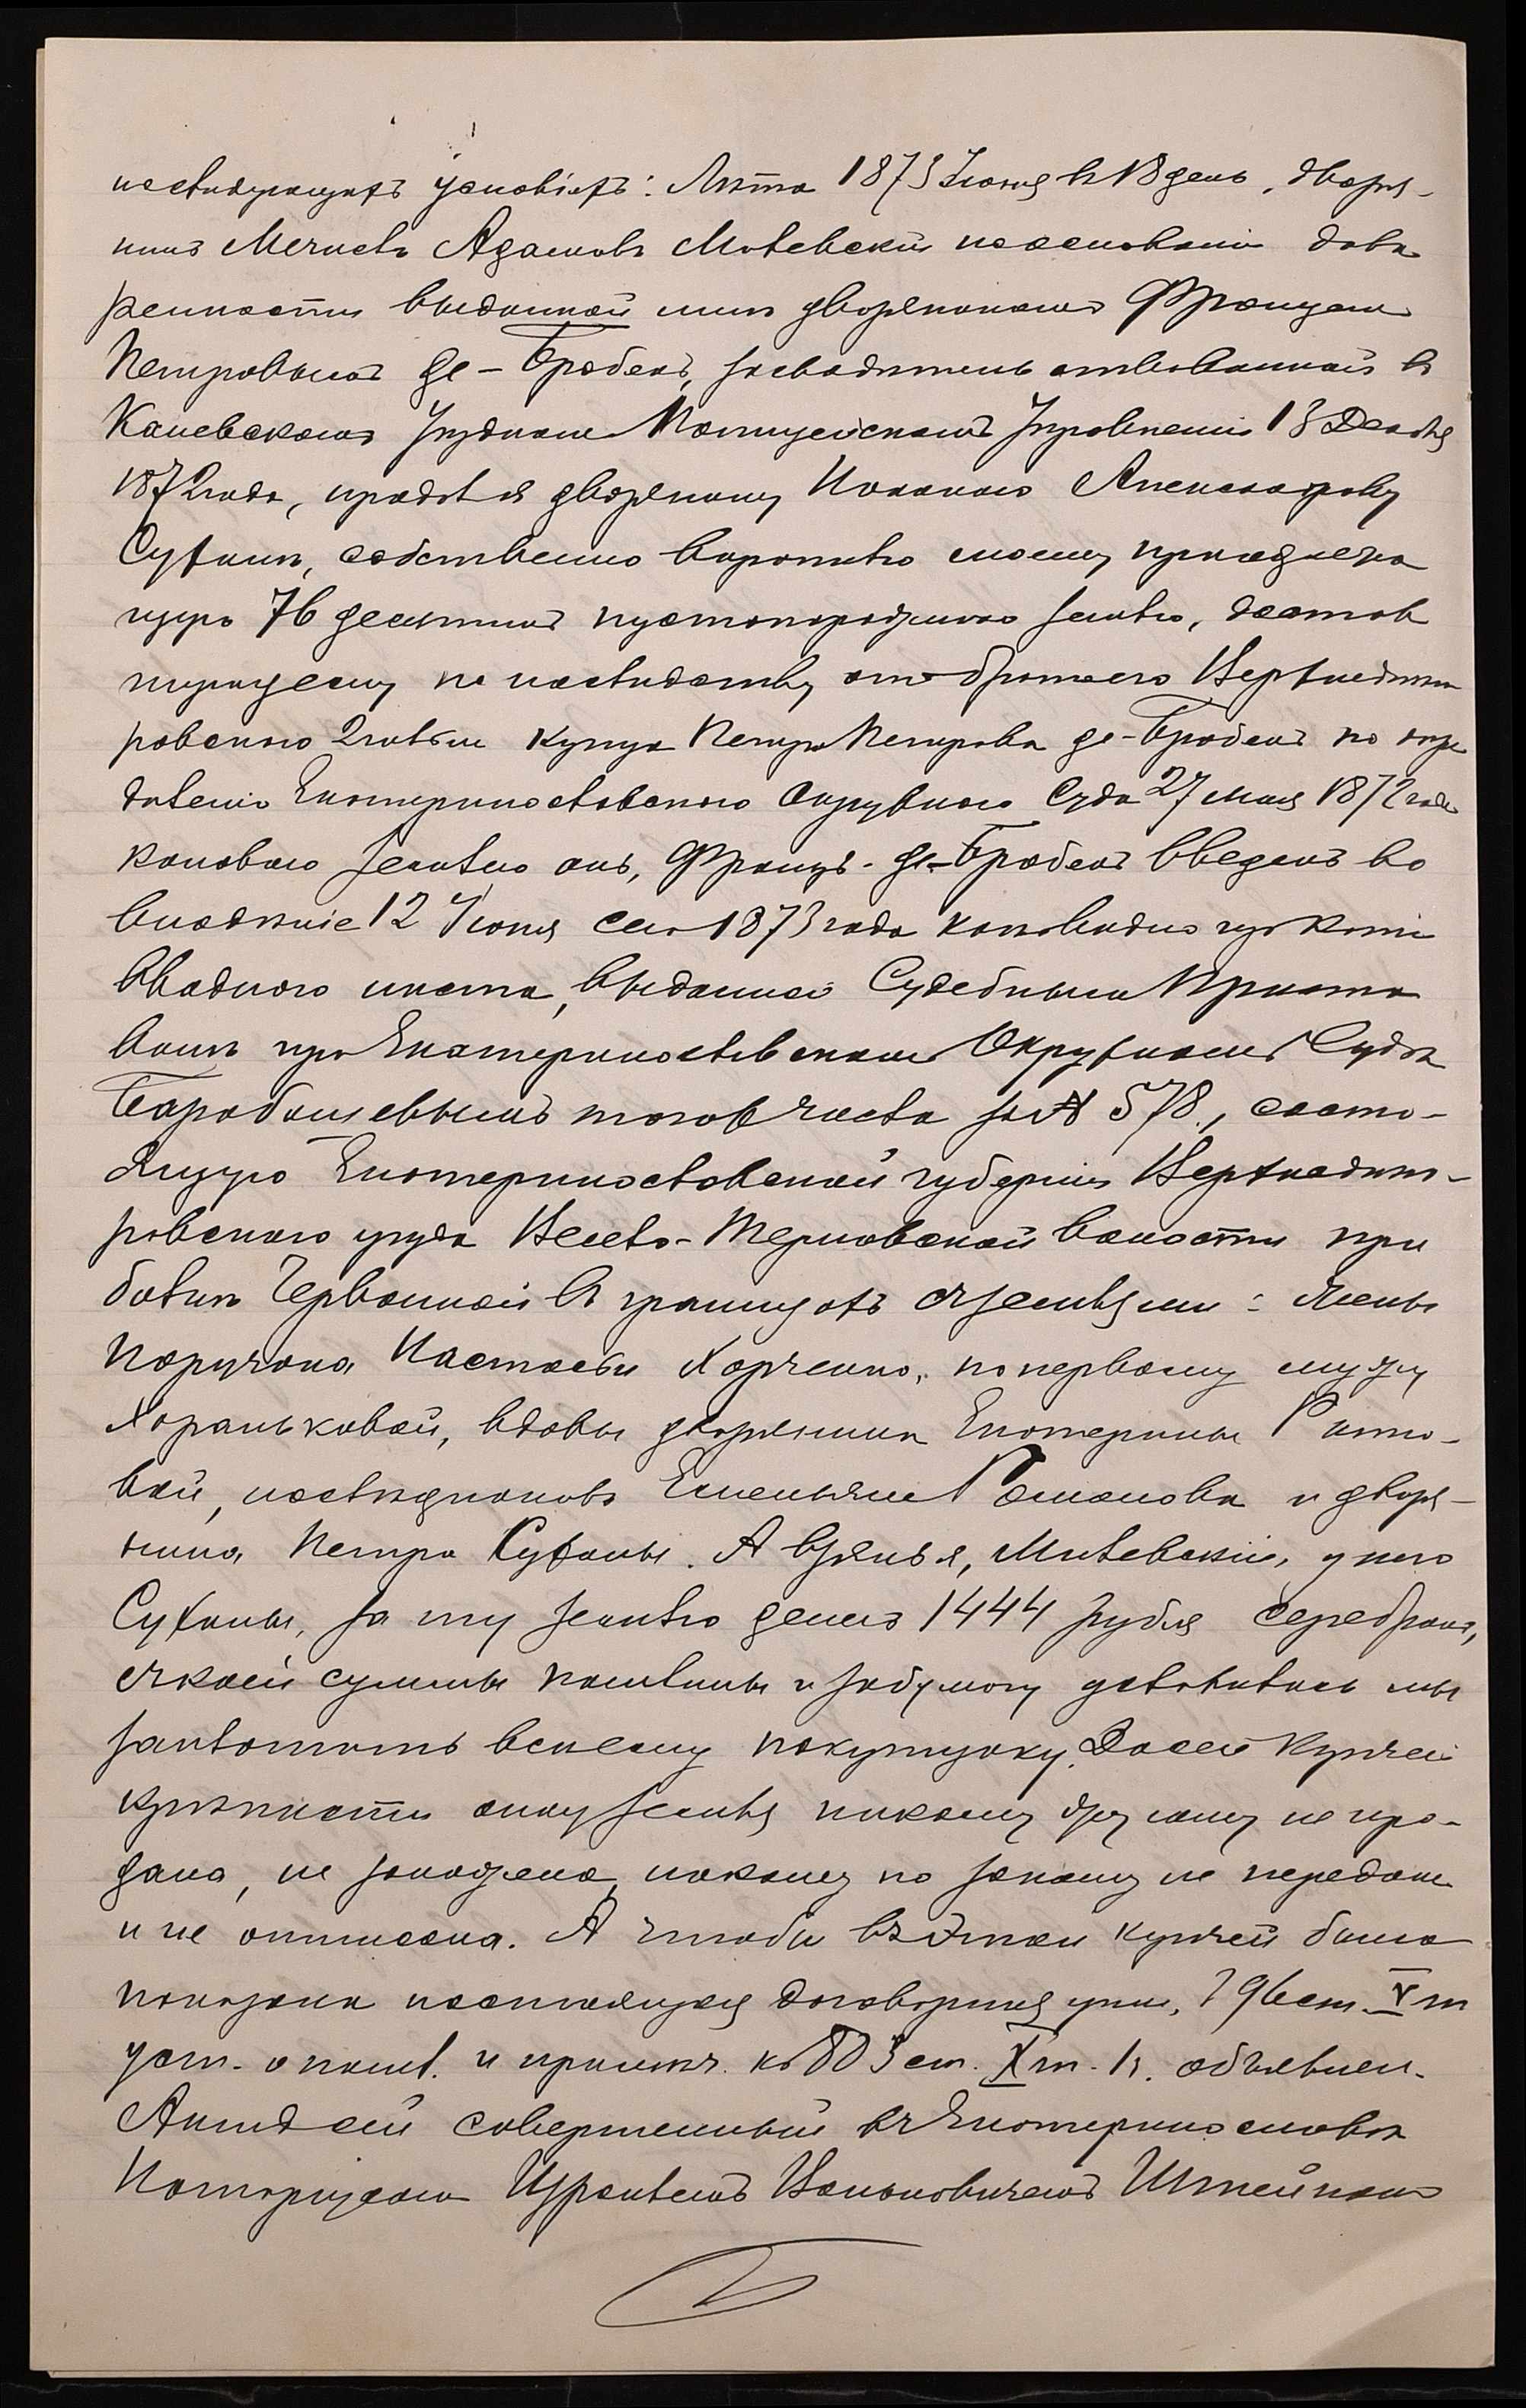 на слѣдующихъ условіяхъ: Лѣта 1873 Іюня въ 18 день, дворя-
нинъ Мечиславъ Адамовъ Милевскій на основаніи довѣ
ренности выданной мнѣ дворяниномъ Францомъ
Петровымъ де-Брабекъ, засвидѣтельствованной въ
Каневскомъ Уѣздномъ Полицейскомъ Управленіи 13 Декабря
1872 года, продалъ я дворянину Александрову
Сухинѣ, собственно вѣрителю моему принадлежа
щую 76 десятинъ пустопорожнюю землю, достав
шуюся ему по наслѣдству отъ брата его Верхнеднѣп
ровскаго 2 гильдіи купца Петра Петрова де-Брабекъ по опре
дѣленію Екатеринославскаго Окружнаго Суда 27 Мая 1872 года
каковою землею онъ, Францъ де-Брабекъ введенъ во
владѣніе 12 Іюня сего 1873 года какъ видно изъ копіи
вводнаго листа, выданной Судебнымъ Приста
вомъ при Екатеринославскомъ Окружномъ Судѣ
Барабашевымъ того числа за № 578, состо-
ящую Екатеринославской губерніи Верхнеднѣп-
ровскаго уѣзда Весело-Терновской волости при
балкѣ Червонной въ границахъ съ землями: жены
Поручика Настасьи Харченко, по первому мужу
Хораньковой, вдовы дворянки Екатерины
вой, наслѣдниковъ Емельяна Романова и дворя-
нина Петра Сухины. А взялъ я, Милевскій, у него
Сухины, за ту землю денегъ 1444 рубля серебромъ,
съ коей суммы пошлины и за бумагу условились мы
заплатить всѣ ему покупщику. До сей купчей
крѣпости оная земля никому другому не про-
дана, не заложена, никому по закону не передана
и не отписана. А чтобы въ этой купчей была
показана настоящая договорная цѣна, 196 ст. V т
уст. о пошл. и примѣч. къ 803 ст. X т. 1 ч. объявлен.
Актъ сей совершенный въ Екатеринославѣ
Нотаріусомъ Израилемъ Штейномъ